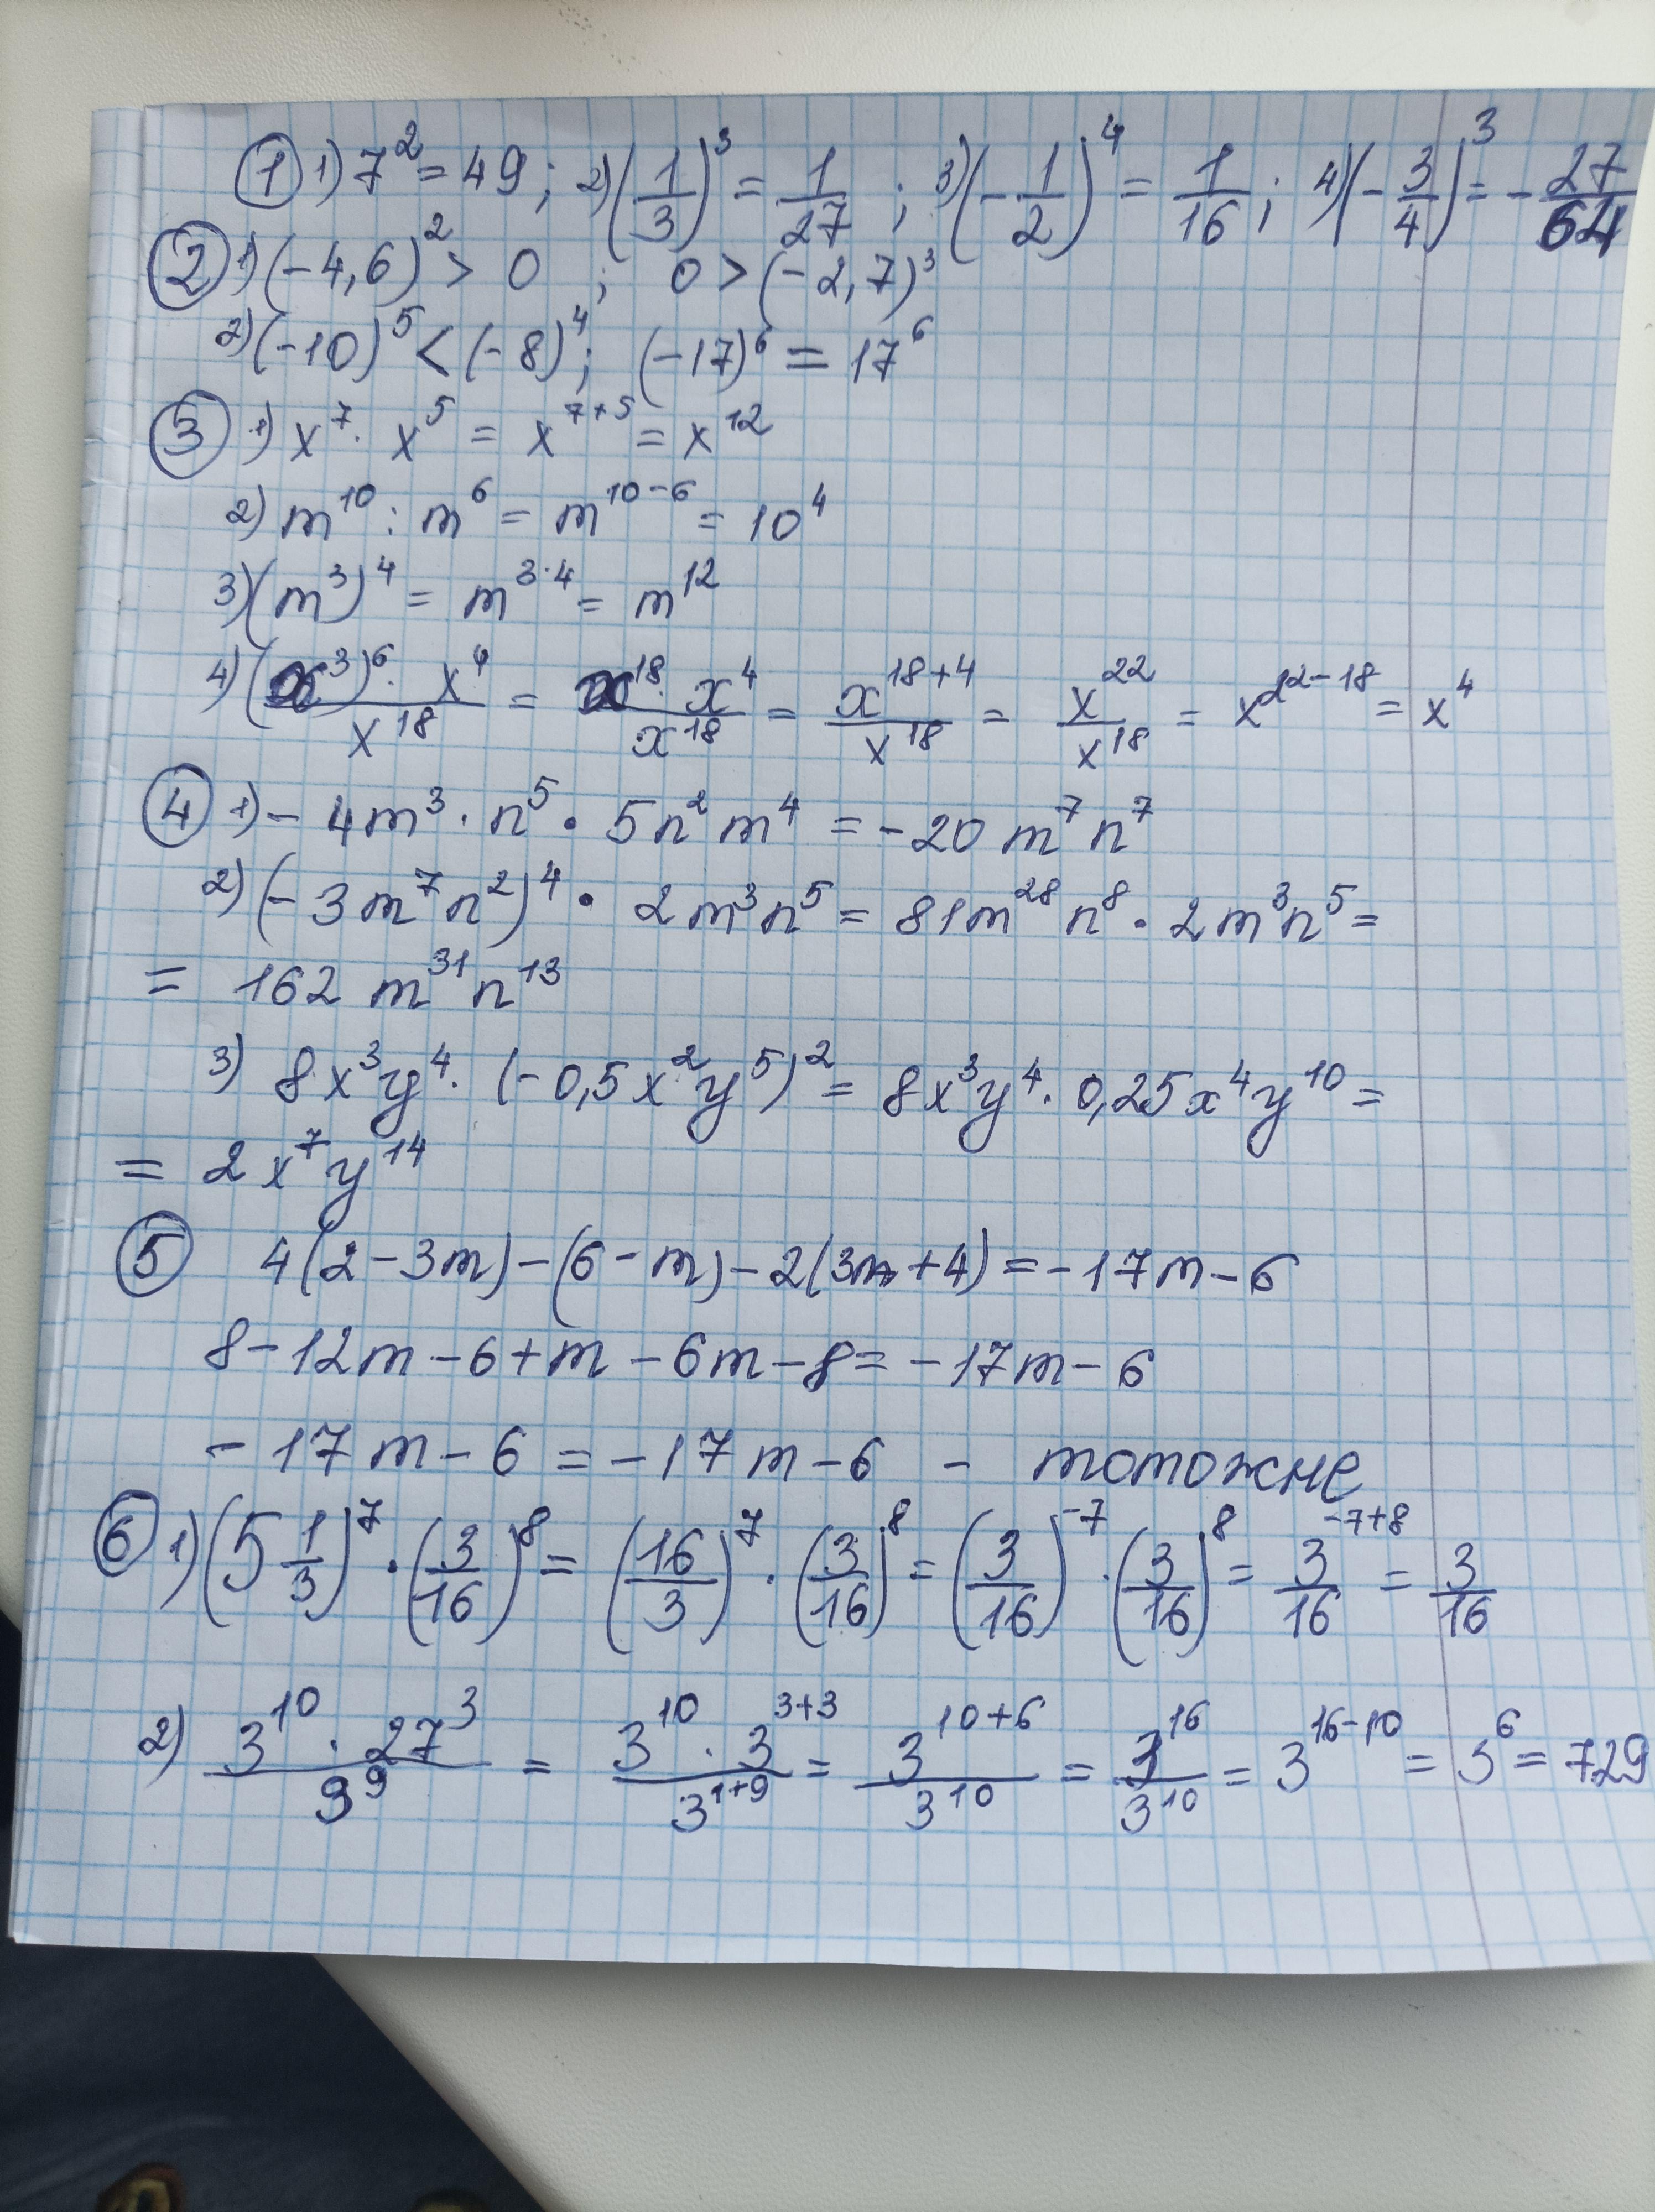 ① 1) 7² = 49; 2) (1/3)³ = 1/27; 3) (-1/2)⁴ = 1/16; 4) (-3/4)³ = -27/64
② 1) (-4,6)² > 0 ; 0 > (-2,7)³
2) (-10)⁵ < (-8)⁴; (-17)⁶ = 17⁶
③ 1) x⁷ · x⁵ = x⁷⁺⁵ = x¹²
2) m¹⁰ : m⁶ = m¹⁰⁻⁶ = 10⁴
3) (m³)⁴ = m^(3·4) = m¹²
4) ((x³)⁶ · x⁴)/x¹⁸ = (x¹⁸ · x⁴)/x¹⁸ = x¹⁸⁺⁴/x¹⁸ = x²²/x¹⁸ = x²²⁻¹⁸ = x⁴
④ 1) - 4m³ · n⁵ · 5n²m⁴ = -20 m⁷n⁷
2) (-3m⁷n²)⁴ · 2m³n⁵ = 81m²⁸n⁸ · 2m³n⁵ =
= 162 m³¹n¹³
3) 8x³y⁴ · (-0,5x²y⁵)² = 8x³y⁴ · 0,25x⁴y¹⁰ =
= 2x⁷y¹⁴
⑤ 4(2-3m)-(6-m)-2(3m+4) = -17m-6
8-12m-6+m-6m-8 = -17m-6
-17m-6 = -17m-6 - тотожне
⑥ 1) (5 1/3)⁷ · (3/16)⁸ = (16/3)⁷ · (3/16)⁸ = (3/16)⁻⁷ · (3/16)⁸ = 3/16⁻⁷⁺⁸ = 3/16
2) (3¹⁰ · 27³)/9⁹ = (3¹⁰ · 3³⁺³)/3¹⁺⁹ = 3¹⁰⁺⁶/3¹⁰ = 3¹⁶/3¹⁰ = 3¹⁶⁻¹⁰ = 3⁶ = 729